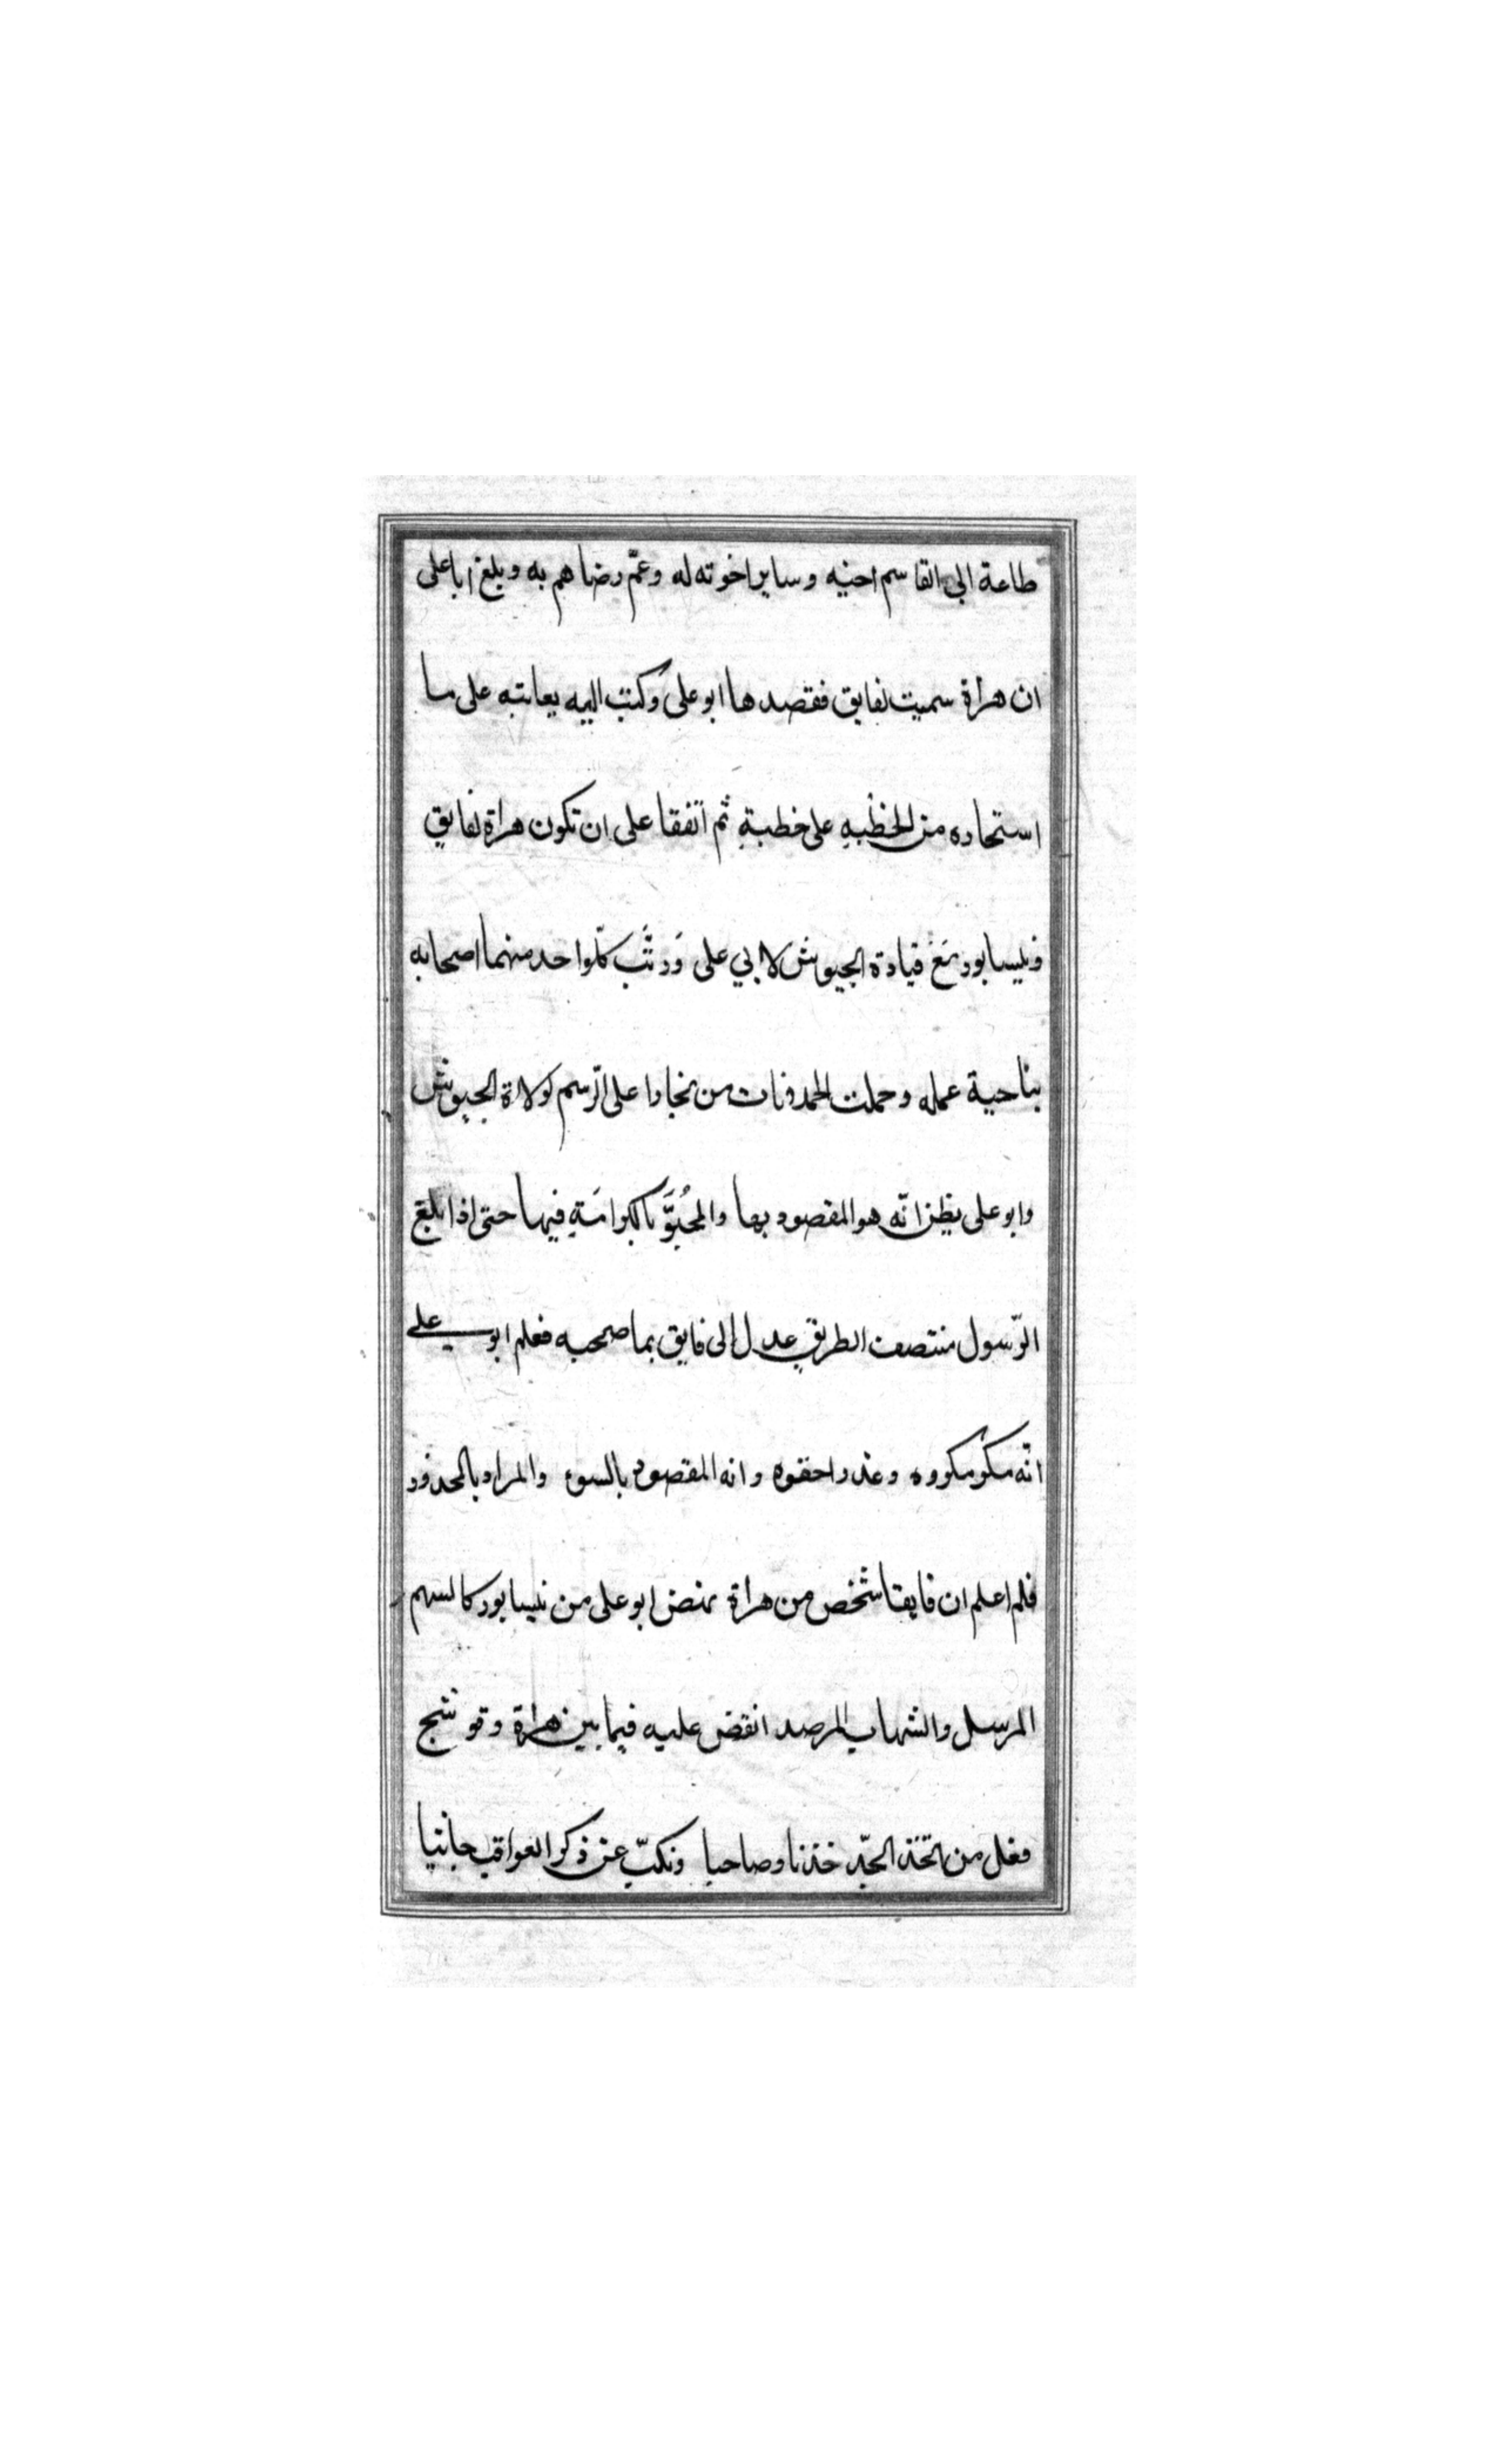 طاعة ابي القاسم اخيه وساير اخوته له وعمّ رضاهم به وبلغ ابا على
ان هراة سميت لفايق فقصدها ابو على وكتب اليه يعاتبه على ما
استجازه من الخطْبهِ على خطبةِ ثم اتّفقا على ان تكون هراة لفايق
ونيسابور مَعَ قيادة الجيوش لابي على وَرتَّب كلّ واحد منهما اصحابه
بناحية عمله وحملت الحمد من بخارا على الرّسم لولاة الجيوش
وابو على يظن انّه هو المقصود بها والمحُبوَّ بالكرامَةِ فيها حتى اذا بلغ
الرّسول منتصف الطريق عدل الى فايق بما صحبه فعلم ابو على
انّه مكر مكروه وغدر احقوه وانه المقصود بالسوء والمراد بالمحذور
فلما علم ان فايقا شخص من هراة نهض ابو على من نيسابور كالسهم
المرسل والشهاب المرصد انقض عليه فيما بين هراة و
فعل من اتّخذ الجّد خدنا وصاحبا ونكبّ عن ذكر العواقب جانبا